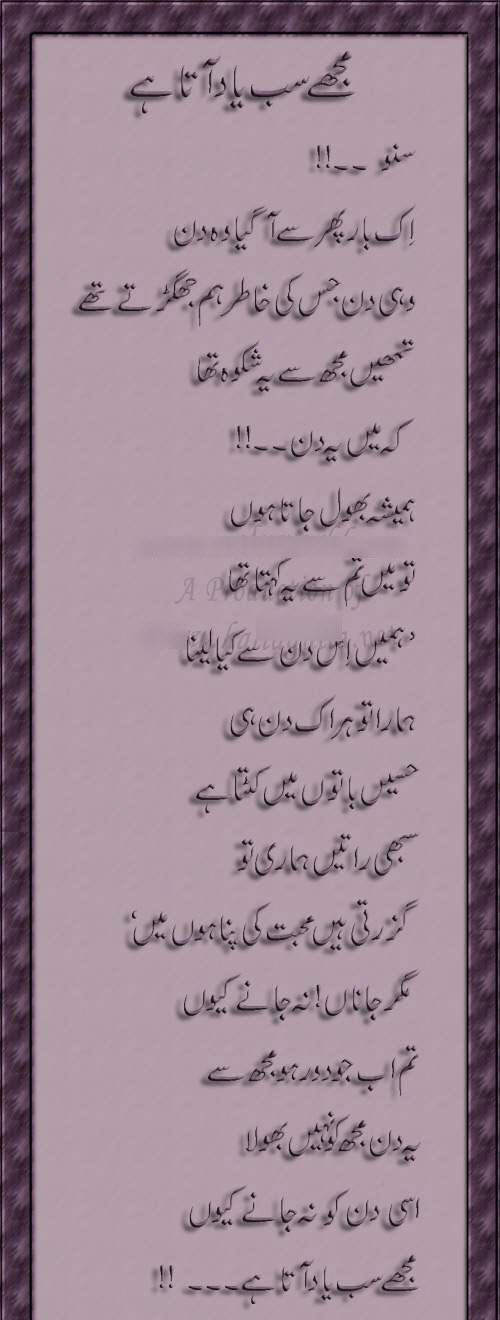 مجھے سب یاد آتا ہے
سنو ۔۔!!
اِک بار پھر سے آ گیا وہ دن
وہی دن جس کی خاطر ہم جھگڑتے تھے
تمھیں مجھ سے یہ شکوہ تھا
کہ میں یہ دن۔۔!!
ہمیشہ بھول جاتا ہوں
تو میں تم سے یہ کہتا تھا
A Production
’ہمیں اِس دن سے کیا لینا
ہمارا تو ہر اک دن ہی
حسیں باتوں میں کٹتا ہے
سبھی راتیں ہماری تو
گزرتی ہیں محبت کی پناہوں میں‘
مگر جاناں! نہ جانے کیوں
تم اب جو دور ہو مجھ سے
یہ دن مجھ کو نہیں بھولا
اسی دن کو نہ جانے کیوں
مجھے سب یاد آتا ہے۔۔۔ !!